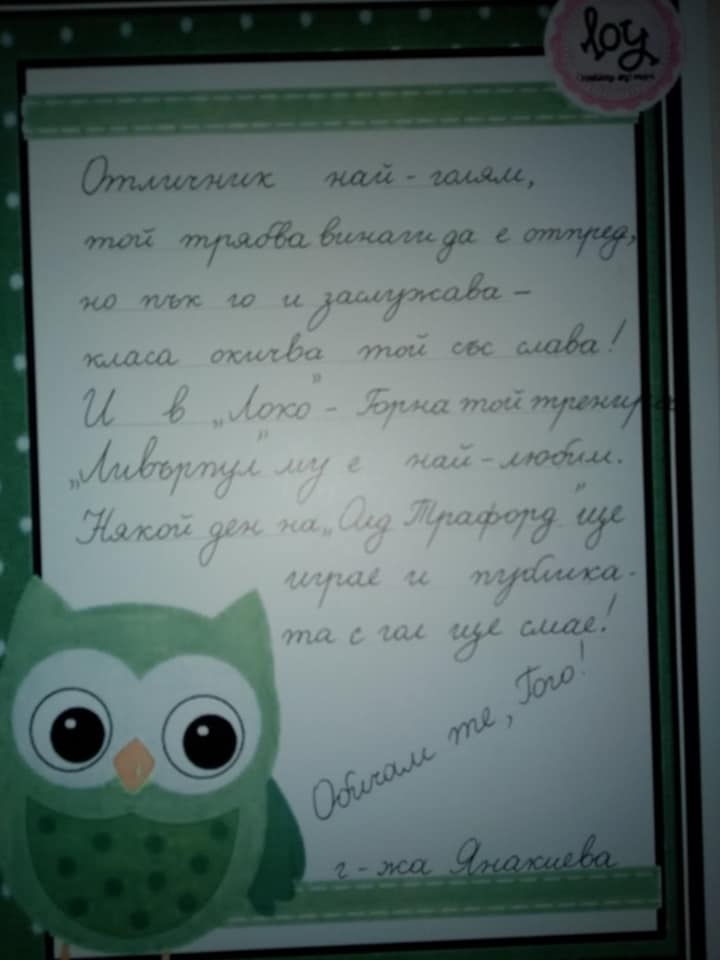 loy
Отличник най-голям,
той трябва винаги да е отпред,
но пък го и заслужава –
класа окичва той със слава!
И в „Локо" - Горна той тренира
„Ливърпул" му е най-любим.
Някой ден на „Олд Трафорд" ще
играе и публика-
та с гол ще смае!
Обичам те, Гого!
г-жа Янакиева